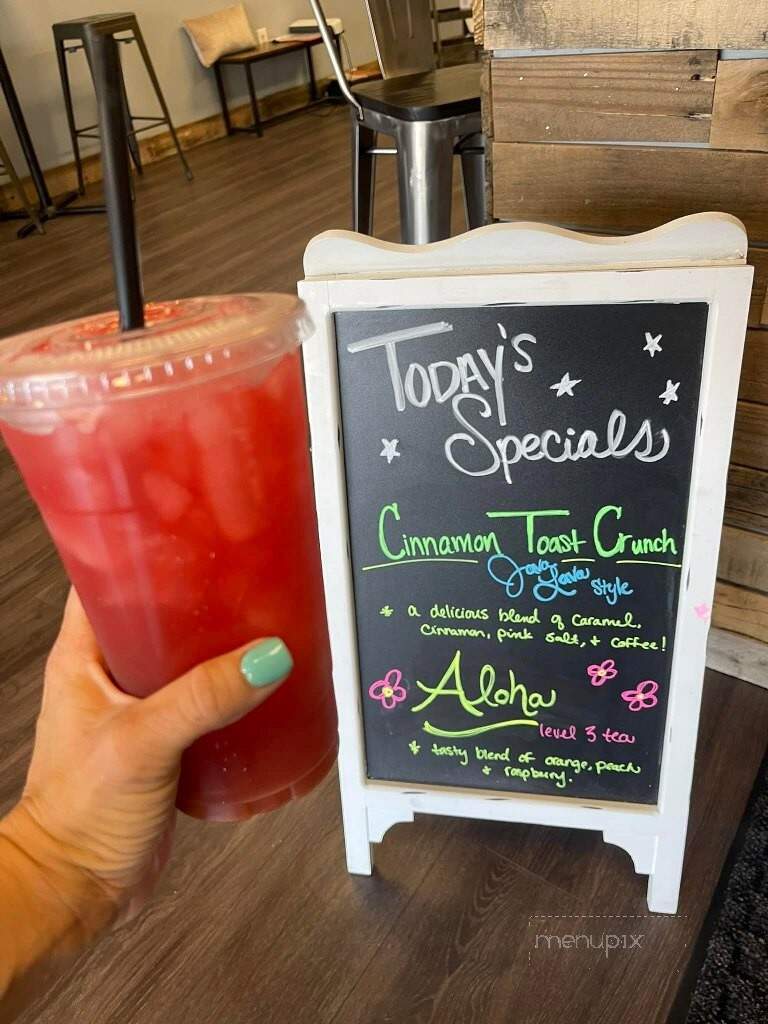 Today's
Specials
Cinnamon Toast Crunch
Java Lava style
* a delicious blend of caramel,
cinnamon, pink salt, + coffee!
Aloha
level 3 tea
* tasty blend of orange, peach
+ raspburry.
menupix